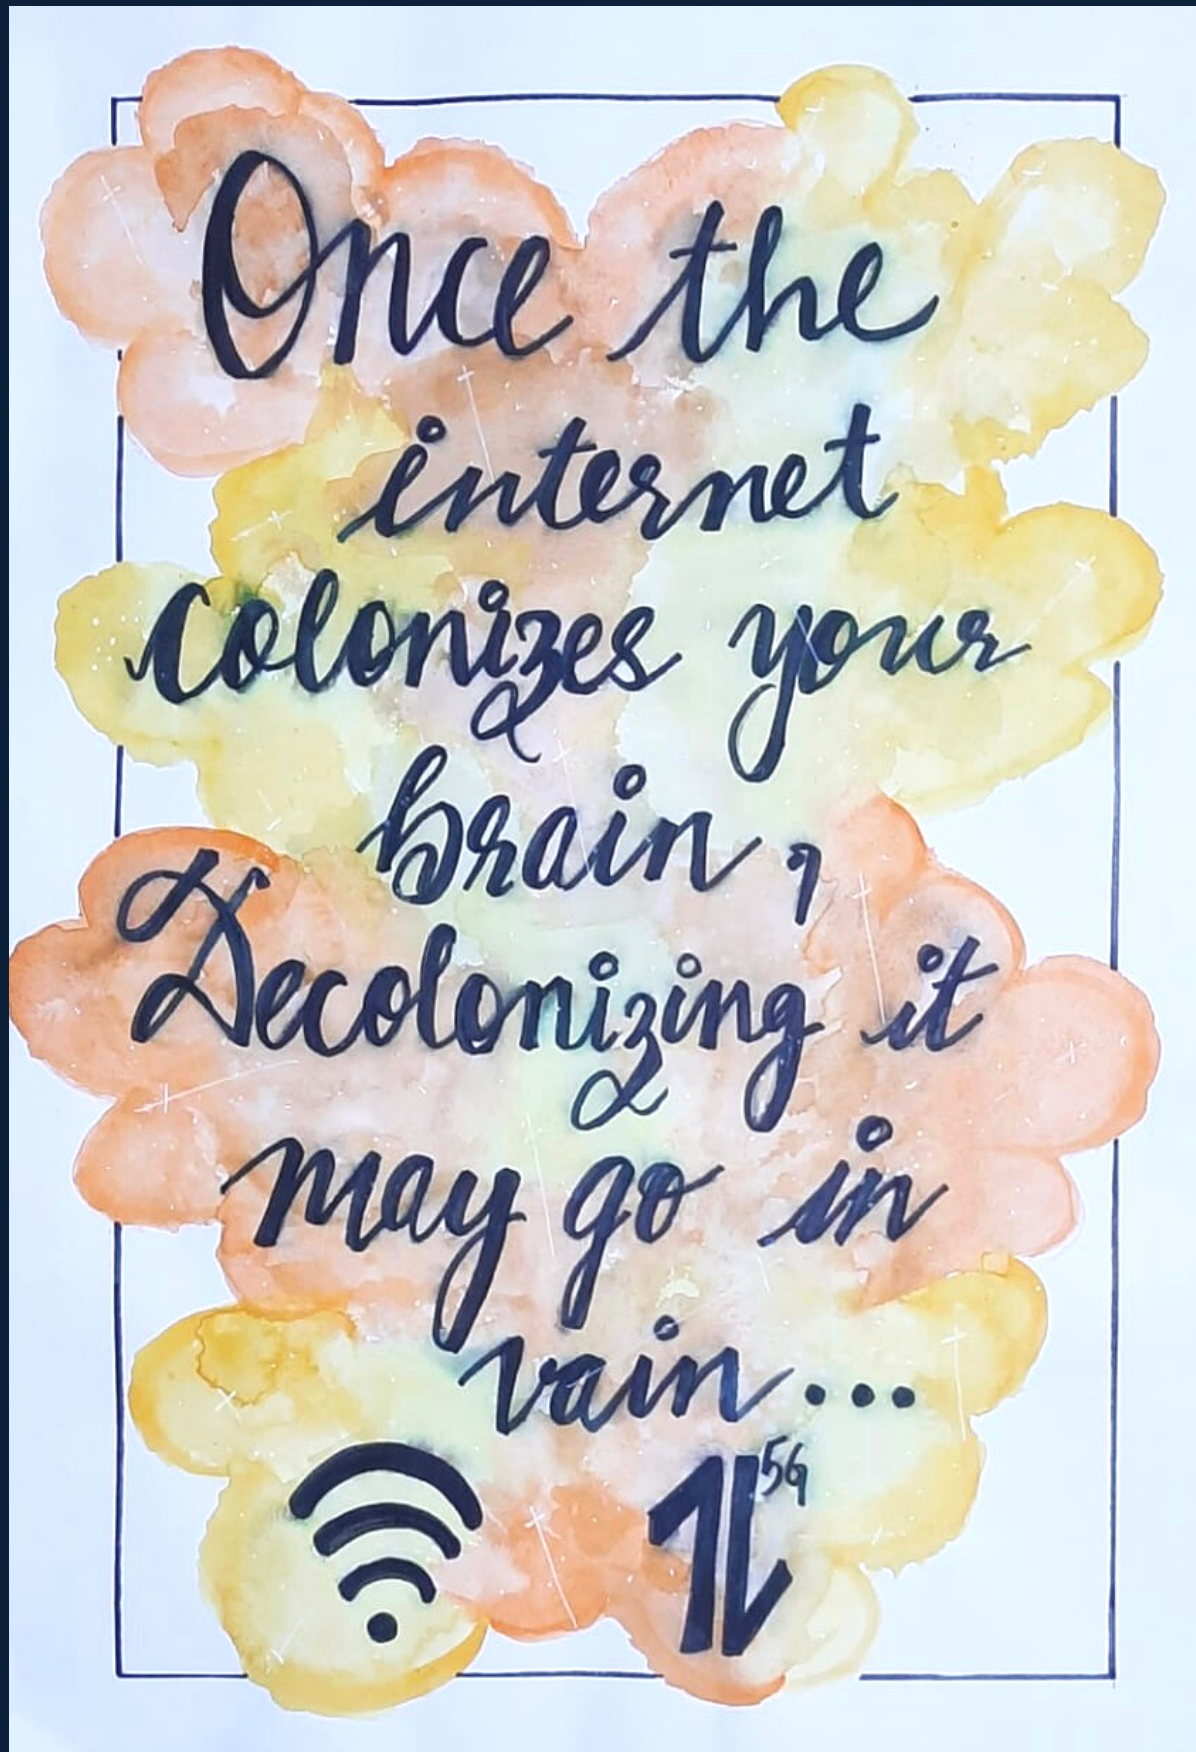 Once the
internet
colonizes your
brain,
Decolonizing it
may go in
vain...
5G